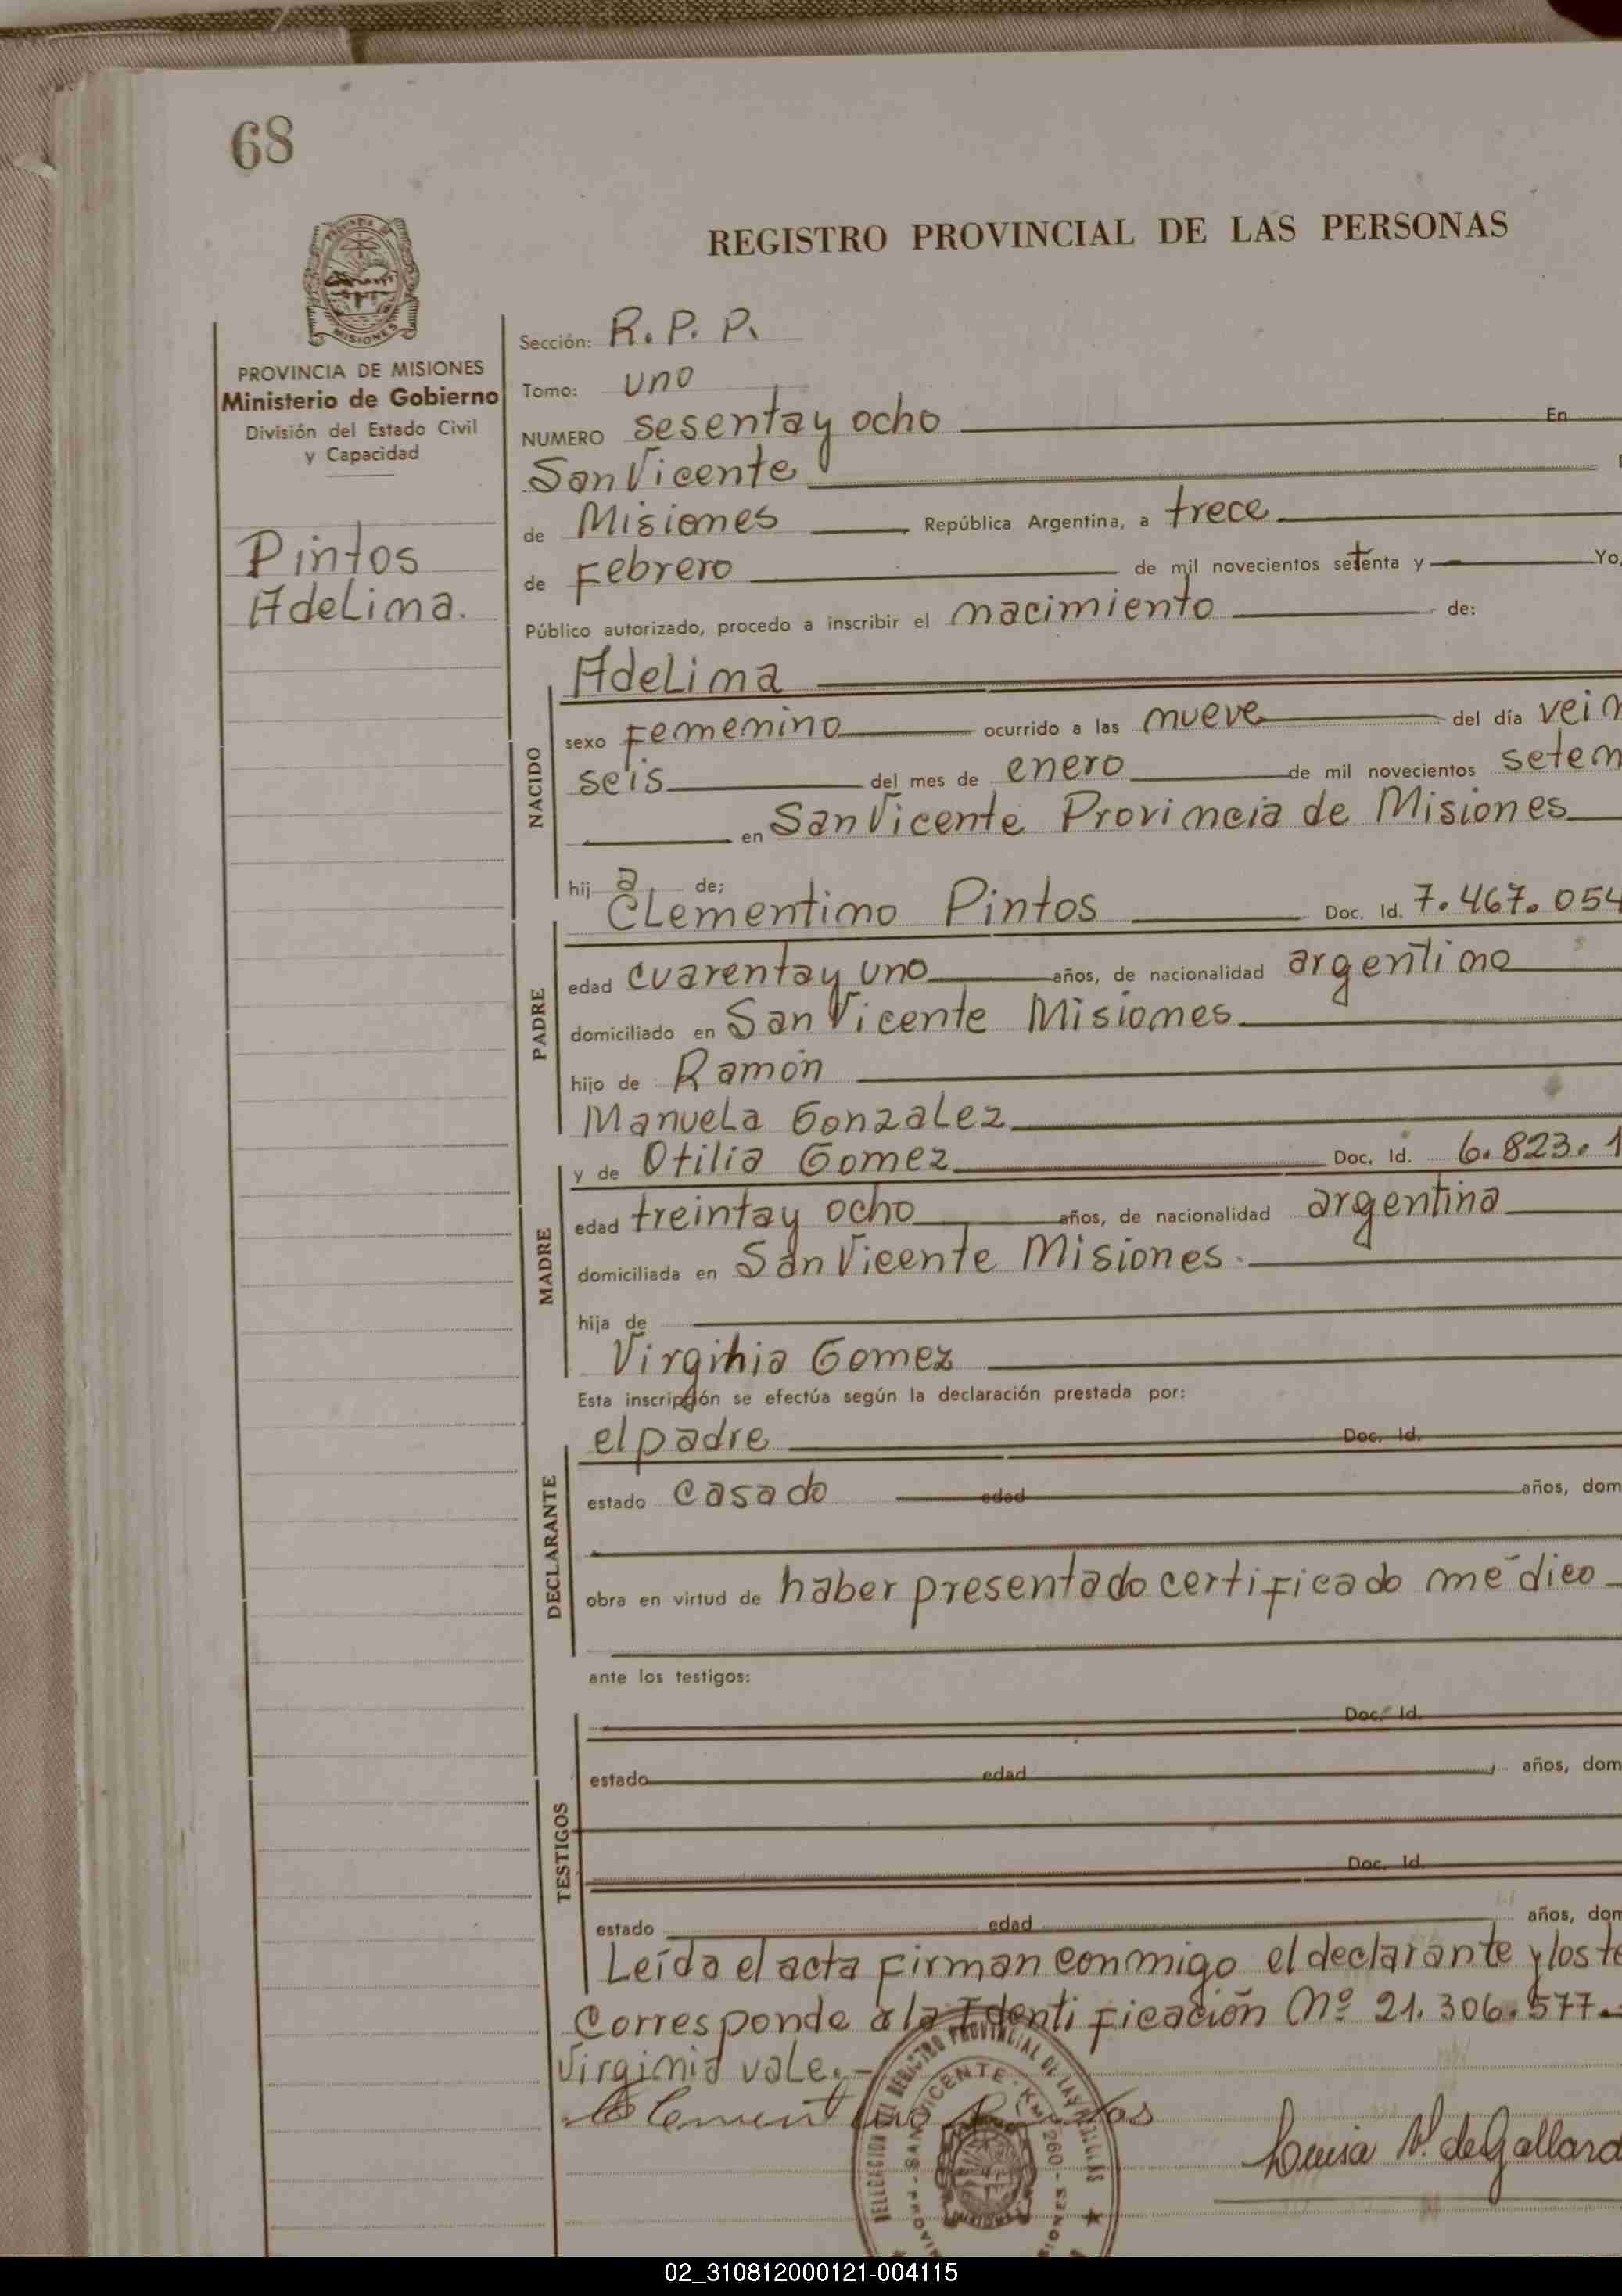 68
REGISTRO PROVINCIAL DE LAS PERSONAS
PROVINCIA DE MISIONES
Ministerio de Gobierno
División del Estado Civil
y Capacidad
Pintos
Adelima.
Sección: R. P. P.
Tomo: uno
NUMERO sesenta y ocho En
San Vicente
de Misiones República Argentina, a trece
de Febrero de mil novecientos setenta y Yo,
Público autorizado, procedo a inscribir el nacimiento de:
NACIDO
Adelima
sexo Femenino ocurrido a las nueve del día vein
seis del mes de enero de mil novecientos seten
en San Vicente Provincia de Misiones
hij a de;
PADRE
Clementino Pintos Doc. Id. 7.467.054
edad cuarenta y uno años, de nacionalidad argentino
domiciliado en San Vicente Misiones
hijo de Ramón
Manuela Gonzalez
MADRE
y de Otilia Gomez Doc. Id. 6.823.1
edad treinta y ocho años, de nacionalidad argentina
domiciliada en San Vicente Misiones.
hija de
Virginia Gomez
Esta inscripción se efectúa según la declaración prestada por:
DECLARANTE
el padre Doc. Id.
estado casado edad años, dom
obra en virtud de haber presentado certificado médico
ante los testigos:
TESTIGOS
Doc. Id.
estado edad años, dom
Doc. Id.
estado edad años, dom
Leída el acta firman conmigo el declarante y los te
Corresponde a la Identificación Nº 21.306.577.-
Virginia vale.-
Clementino Pintos
Luisa V. de Gallard
DELEGACION DEL REGISTRO PROVINCIAL DE LAS
SAN VICENTE - KM. 260 -
MISIONES
02_310812000121-004115